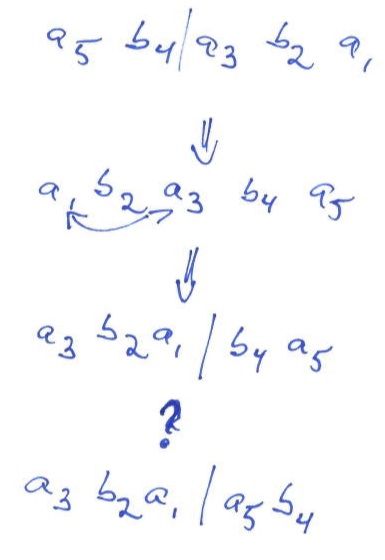 a₅ b₄ | a₃ b₂ a₁
⇓
a₁ b₂ a₃ b₄ a₅
⇓
a₃ b₂ a₁ | b₄ a₅
?
a₃ b₂ a₁ | a₅ b₄